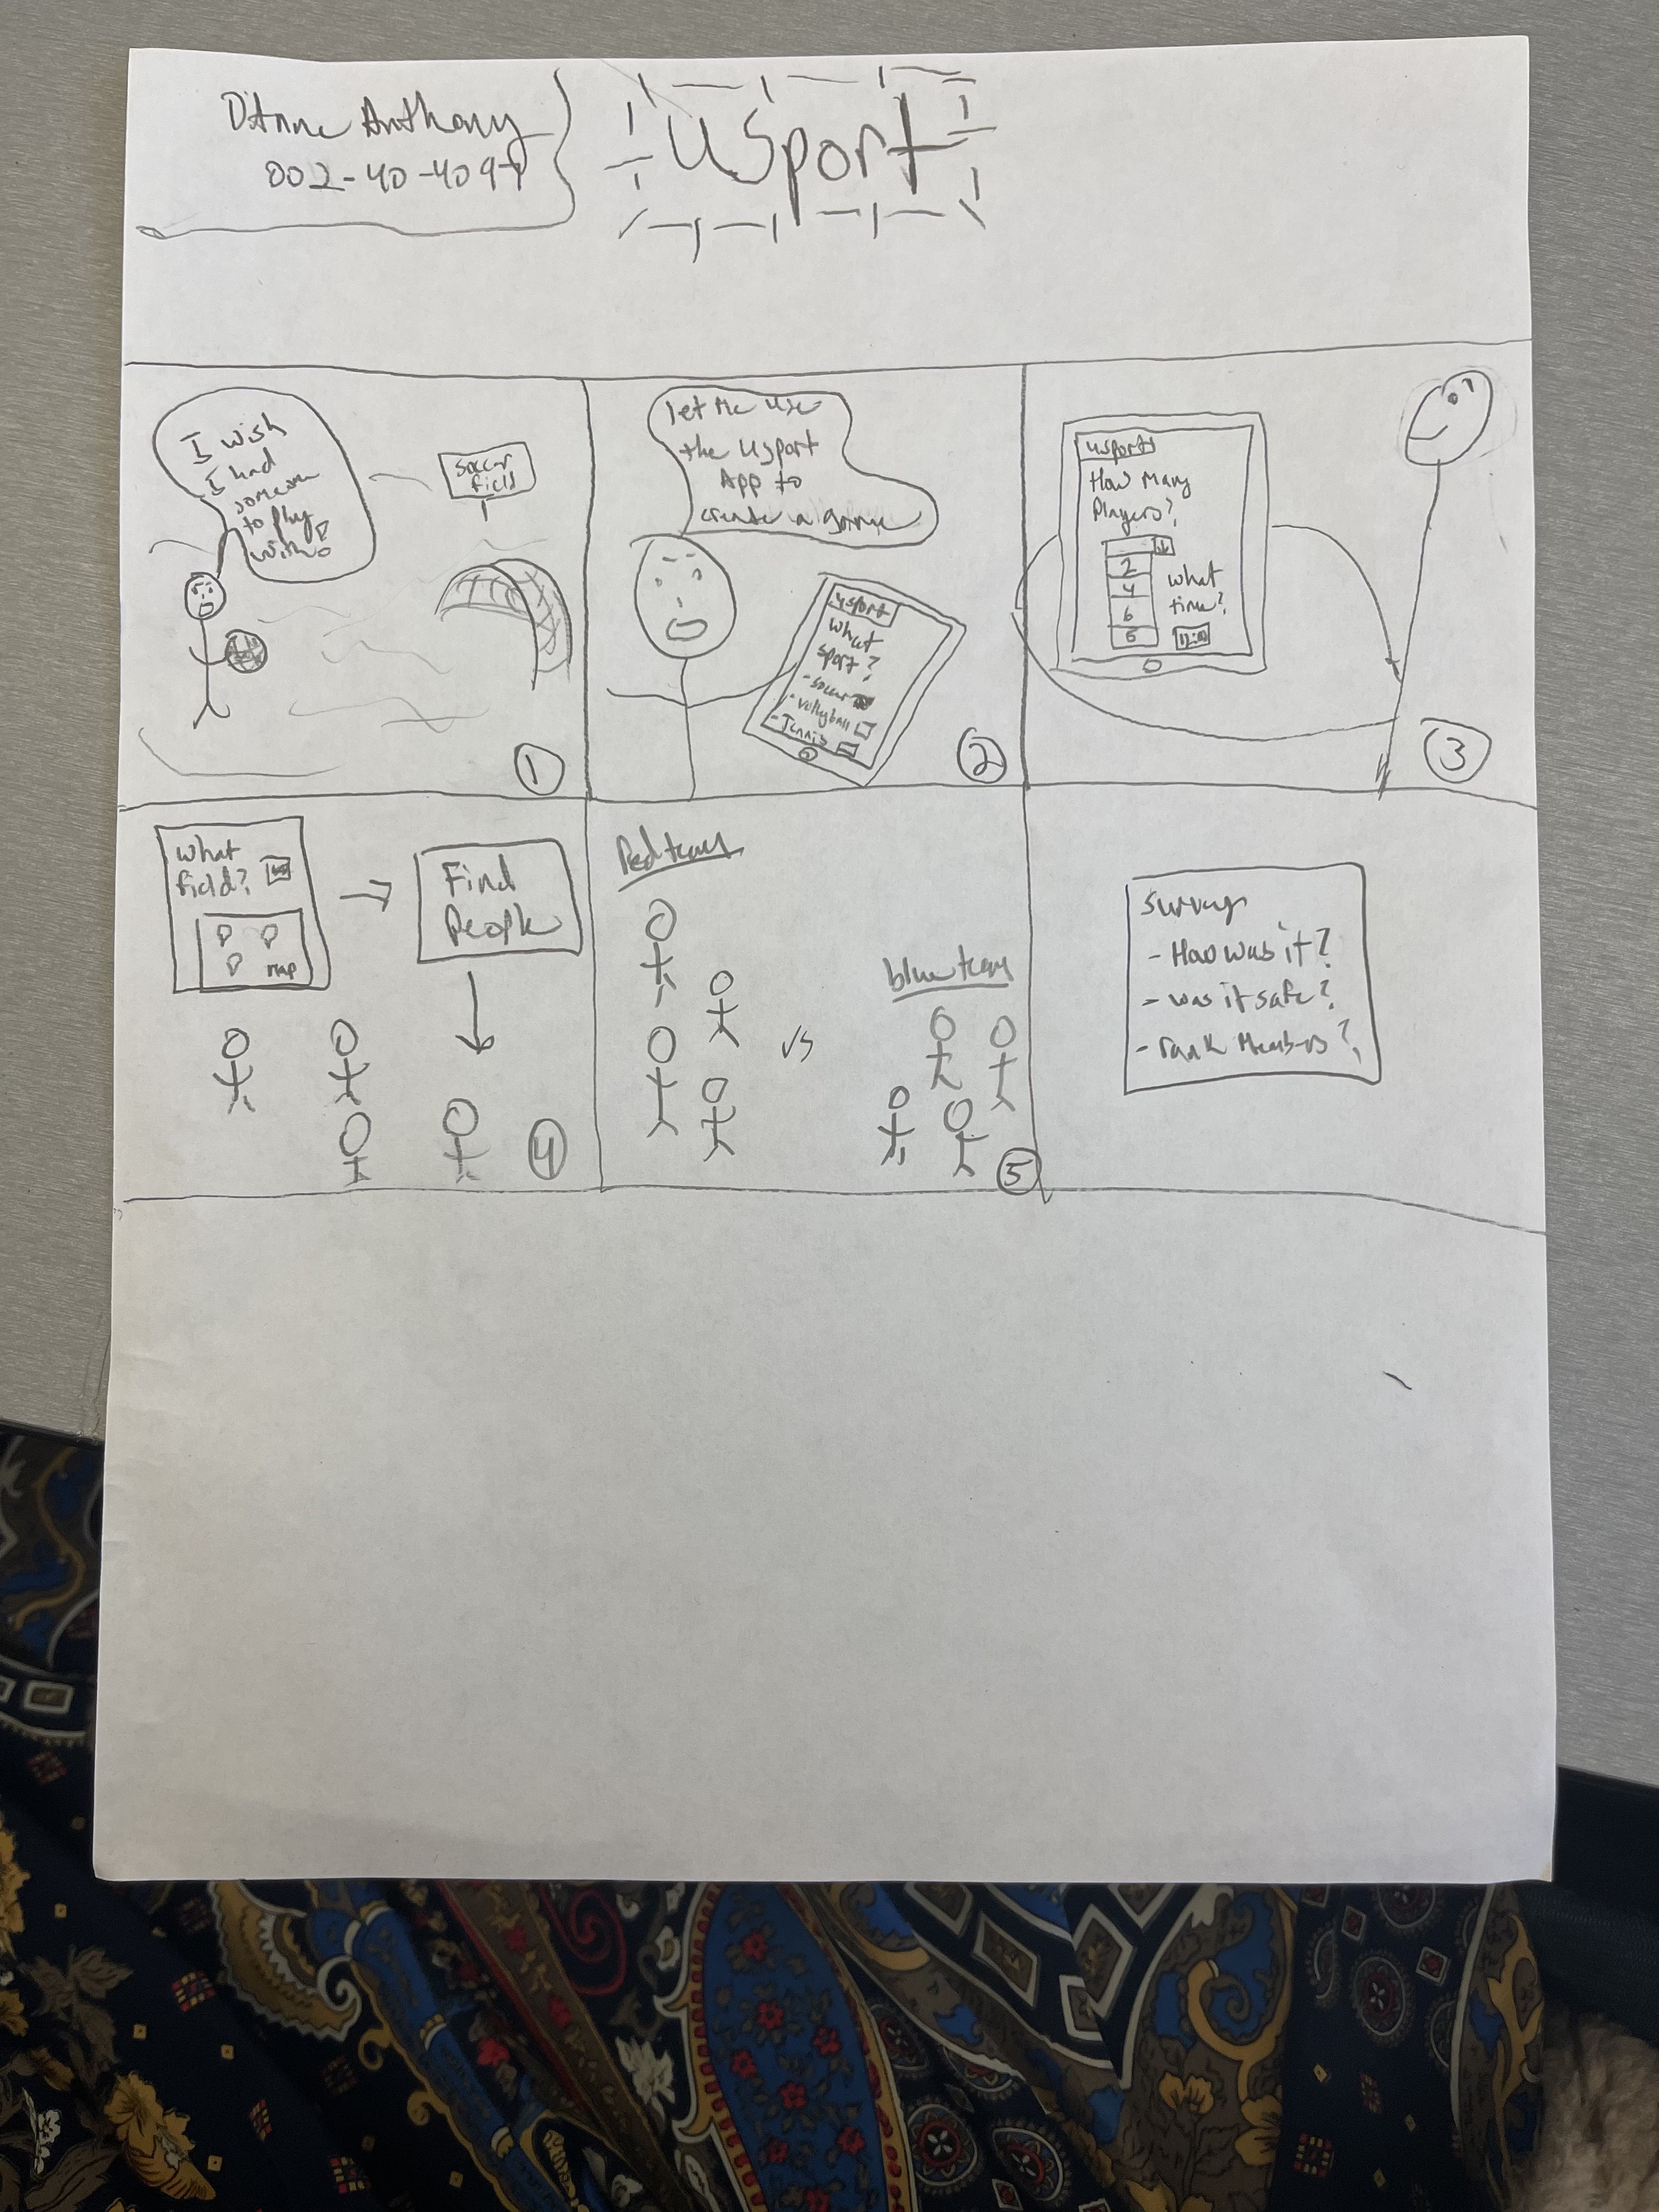 D'Anne Anthony
002-40-4097
USport
I wish
I had
someone
to play
with!
Soccer
field
1
let me use
the Usport
App to
create a game
usport
what
sport?
- soccer
- vollyball
- Tennis
2
usports
How many
Players?
2
4
6
what
time?
12:00
3
what
field?
map
Find
People
4
Red team
vs
blue team
5
Survey
- How was it?
- was it safe?
- rank Members?